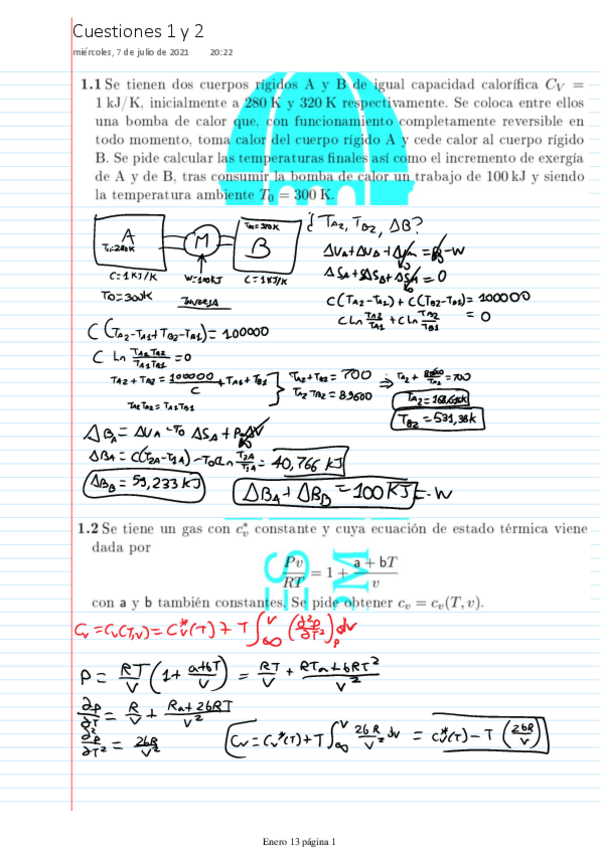 Cuestiones 1 y 2
miércoles, 7 de julio de 2021 20:22
1.1 Se tienen dos cuerpos rígidos A y B de igual capacidad calorífica C_V =
1 kJ/K, inicialmente a 280 K y 320 K respectivamente. Se coloca entre ellos
una bomba de calor que, con funcionamiento completamente reversible en
todo momento, toma calor del cuerpo rígido A y cede calor al cuerpo rígido
B. Se pide calcular las temperaturas finales así como el incremento de exergía
de A y de B, tras consumir la bomba de calor un trabajo de 100 kJ y siendo
la temperatura ambiente T_0 = 300 K.
¿ T_A2, T_B2, ΔB?
A
M
B
C=1KJ/K W=100KJ C=1KJ/K
ΔS_A+ΔS_B+ΔS_M=0
T0=300K
C(T_A2-T_A1)+C(T_B2-T_B1)=100000
C Ln T_A2/T_A1 + C Ln T_B2/T_B1 = 0
C(T_A2-T_A1+T_B2-T_B1)=100000
C Ln T_A2 T_B2/T_A1 T_B1 = 0
T_A2+T_B2 = 100000/C + T_A1+T_B1
T_A2+T_B2=700
T_A2 T_B2=89600
⇒ T_A2 + 89600/T_A2 = 700
T_A2 T_B2 = T_A1 T_B1
T_A2=168,616K
T_B2=531,38K
ΔB_A = ΔU_A - T0 ΔS_A + P0 ΔV
ΔB_A = C(T_2A-T_1A) - T0 C Ln T_2A/T_1A = 40,766 KJ
ΔB_B = 59,233 KJ
ΔB_A + ΔB_B = 100KJ = -W
1.2 Se tiene un gas con c*_v constante y cuya ecuación de estado térmica viene
dada por
Pv/RT = 1 + a + bT/v
con a y b también constantes. Se pide obtener c_v = c_v(T, v).
C_v = C_v(T,v) = C_v*(T) + T ∫_∞^v (∂²p/∂T²)_p dv
P = RT/V (1 + a+bT/V) = RT/V + RTa+bRT²/V²
∂p/∂T = R/V + Ra+2bRT/V²
∂²p/∂T² = 2bR/V²
C_v = C_v*(T) + T ∫_∞^v 2bR/V² dv = C_v*(T) - T (2bR/V)
Enero 13 página 1